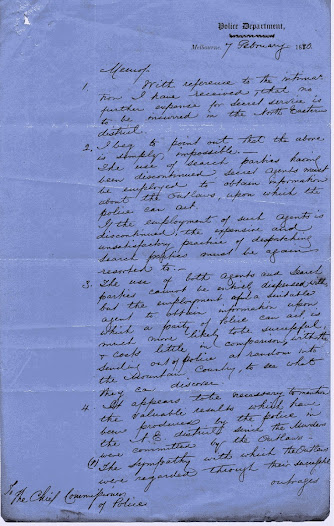 Police Department,
Melbourne, 7 February 1880.
Memo.
1. With reference to the intima-
tion I have received, that no
further expense for secret service is
to be incurred in the North Eastern
district.
2. I beg to point out that the above
is simply impossible.—
The use of search parties having
been discontinued secret agents must
be employed to obtain information
about the Outlaws, upon which the
police can act.
If the employment of such Agents is
discontinued, the expensive and
unsatisfactory practice of despatching
search parties must be again
resorted to.—
3. The use of both Agents and Search
parties cannot be entirely dispensed with
but the employment of a suitable
agent to obtain information upon
which a party of Police can act is
much more likely to be successful
& costs little in comparison with the
sending out of police at random into
the Mountain Country, to see what
they can discover.
4. It appears to be necessary to
the valuable results which have
been produced by the police in
the N.E. district since the Murders
were committed by the Outlaws.
The Sympathy with which the Outlaws
were regarded through their successful
outrages
To
The Chief Commissioner
of Police